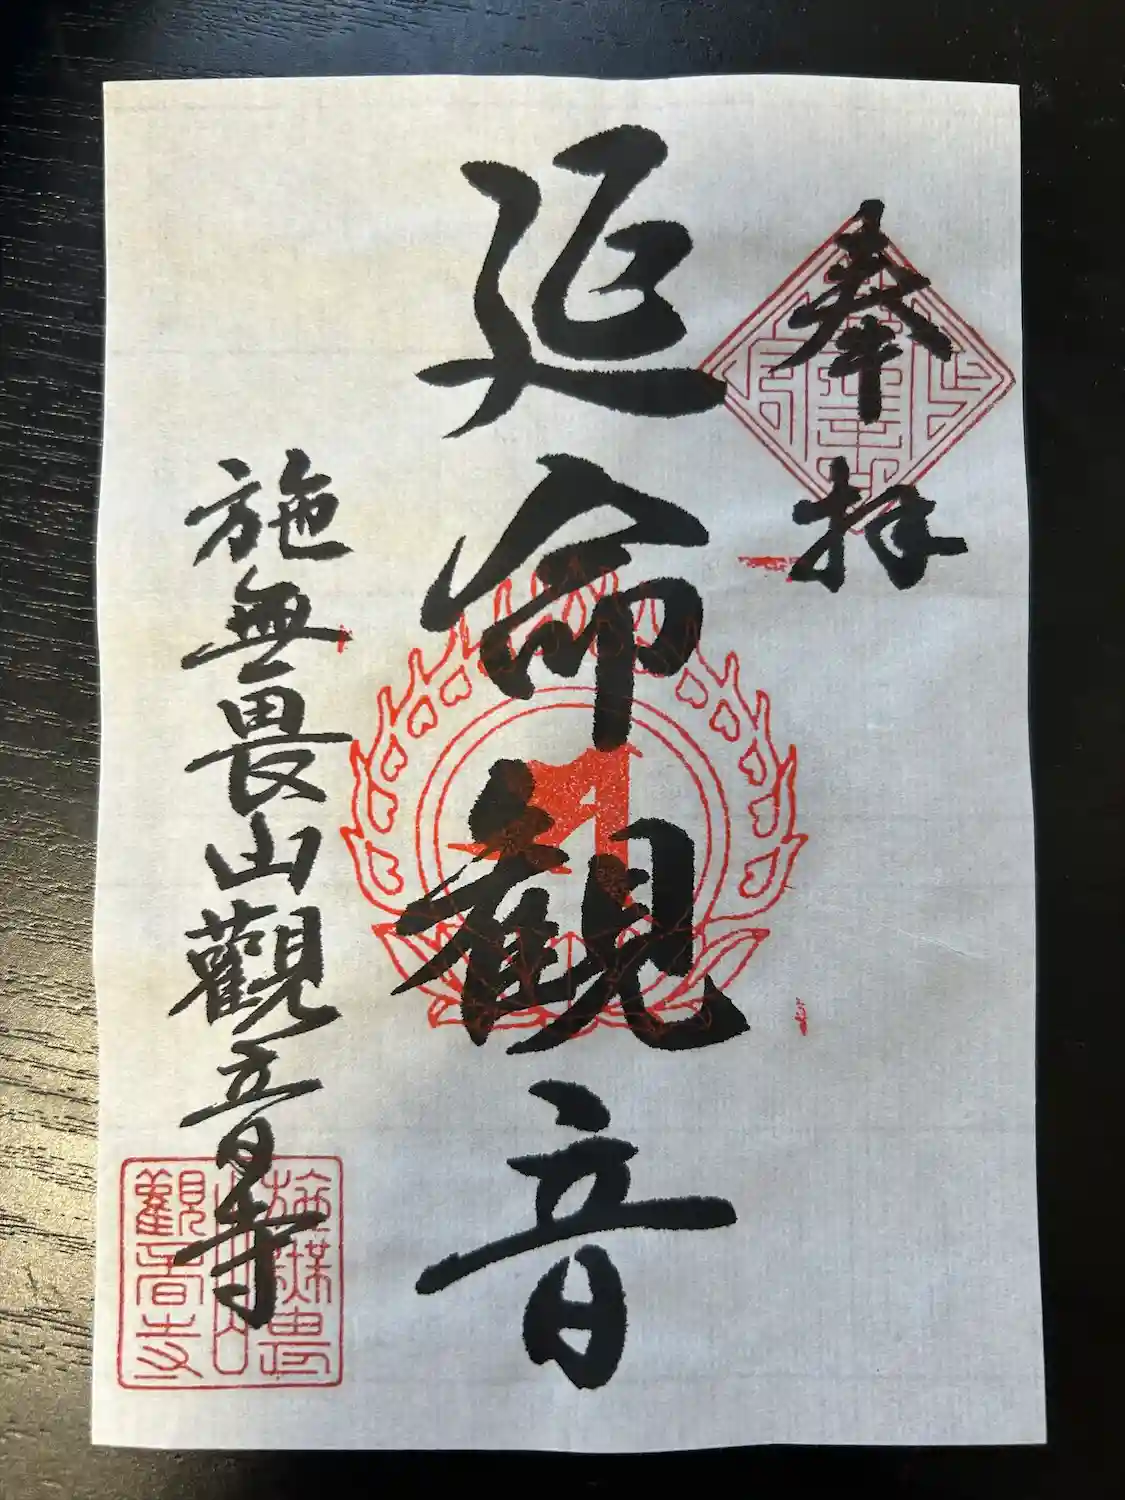 奉拝
延命観音
施無畏山觀音寺
施無畏
山
觀音寺